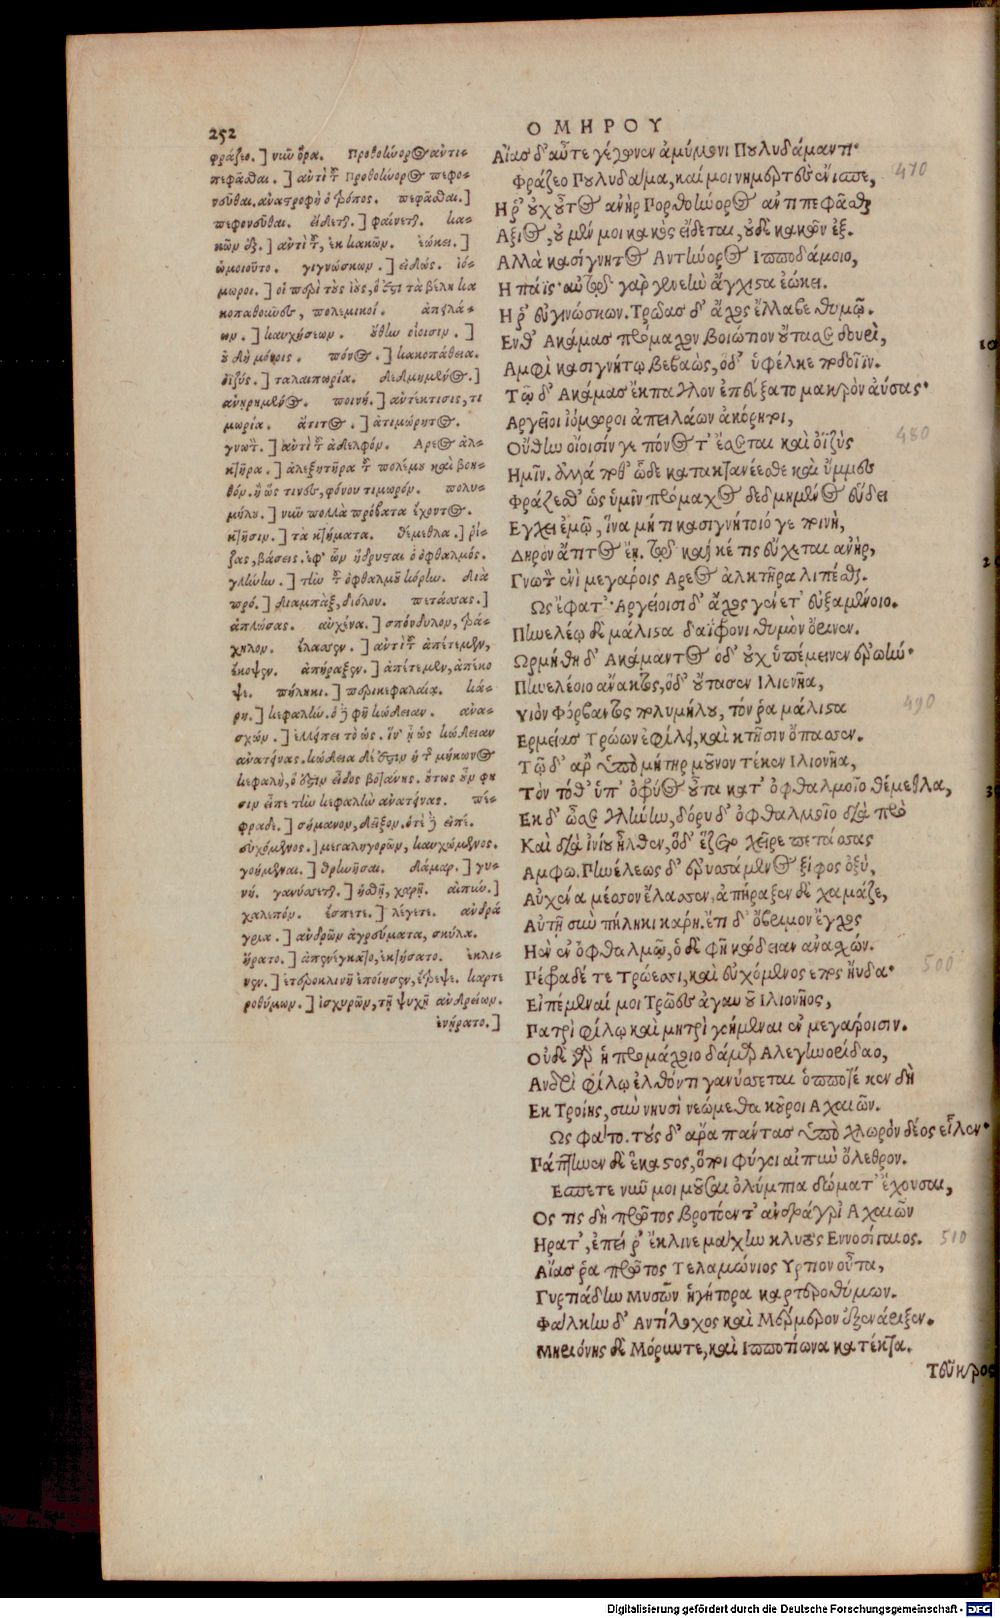 252
ΟΜΗΡΟΥ
φράζεο.] νιῦ ὅρα. Προθοήνορος ἀντι-
πεφάσθαι.] ἀντὶ τοῦ Προθοήνορος πεφο-
νεῦσθαι. ἀναστροφὴ ὁ τρόπος. πεφάσθαι.]
πεφονεῦσθαι. εἴδεται.] φαίνεται. κα-
κῶν ἐξ.] ἀντὶ τοῦ, ἐκ κακῶν. ἐῴκει.]
ὡμοιοῦτο. γιγνώσκων.] εἰδώς. ἰό-
μωροι.] οἱ περὶ τοὺς ἰοὺς, ὅ ἐστι τὰ βέλη κα
κοπαθοῦντες, πολεμικοί. ἀπειλά-
ων.] καυχήσεων. οὔθην οἴοισιν.]
οὐ δὴ μόνοις. πόνος.] κακοπάθεια.
ὀϊζύς.] ταλαιπωρία. δεδμημένος.]
ἀνῃρημένος. ποινή.] ἀντέκτισις, τι
μωρία. ἄτιτος.] ἀτιμώρητος.
γνωτὸν.] ἀντὶ τοῦ ἀδελφόν. Ἄρεος ἀλ-
κτῆρα.] ἀλεξητῆρα τοῦ πολέμου καὶ βοη-
θόν. ἢ ὥς τινες, φόνου τιμωρόν. πολυ-
μήλου.] νιῦ πολλὰ πρόβατα ἔχοντος.
κτῆσιν.] τὰ κτήματα. θέμεθλα.] ῥί-
ζας, βάσεις. ἐφ' ὧν ἥδρυται ὁ ὀφθαλμός.
γλήνην.] τὴν τοῦ ὀφθαλμοῦ κόρην. διὰ
πρό.] διαμπὰξ, διόλου. πετάσσας.]
ἁπλώσας. αὐχένα.] σπόνδυλον, τρά-
χηλον. ἔλασσεν.] ἀντὶ τοῦ ἀπέτεμεν,
ἔκοψεν. ἀπήραξεν.] ἀπέτεμεν, ἀπέκο
ψε. πήληκι.] περικεφαλαίᾳ. κά-
ρη.] κεφαλὴν. ὁ δὲ φῆ κώδειαν. ἀνα-
σχών.] ἐλλείπει τὸ ὡς. ἵν' ᾖ ὡς κώδειαν
ἀνατείνας. κώδεια δέ ἐστιν ἡ τοῦ μήκωνος
κεφαλὴ, ὅ ἐστιν εἶδος βοτάνης. οὕτως οὖν φη
σιν εἶπε τὴν κεφαλὴν ἀνατείνας. πέ-
φραδε.] σήμανον, δεῖξον. ὁτὲ δὲ εἰπέ.
εὐχόμενος.] μεγαληγορῶν, καυχώμενος.
γοήμεναι.] θρηνῆσαι. δάμαρ.] γυ-
νή. γανύσεται.] ἡσθῇ, χαρῇ. αἰπὺν.]
χαλεπόν. ἔσπετε.] λέγετε. ἀνδρά
γρια.] ἀνδρῶν ἀγρεύματα, σκῦλα.
ἤρατο.] ἀπηνέγκατο, ἐκτήσατο. ἔκλι-
νεν.] ἑτεροκλινῆ ἐποίησεν, ἔτρεψε. καρτε
ροθύμων.] ἰσχυρῶν, τῇ ψυχῇ ἀνδρείων.
ἐνήρατο.]
Αἴας δ' αὖτε γέγωνεν ἀμύμονι Πουλυδάμαντι·
Φράζεο Πουλυδάμα, καί μοι νημερτὲς ἐνίσπε, 470
Η ῥ' οὐχ οὗτος ἀνὴρ Προθοήνορος ἀντὶ πεφᾶσθαι
Αξιος, οὐ μέν μοι κακὸς εἴδεται, οὐδὲ κακῶν ἐξ.
Αλλὰ κασίγνητος Αντήνορος Ιπποδάμοιο,
Η παῖς· αὐτῷ γὰρ γενεὴν ἄγχιστα ἐῴκει.
Η ῥ' εὐγνώσκων. Τρῶας δ' ἄχος ἔλλαβε θυμῷ.
Ενθ' Ακάμας Πρόμαχον Βοιώτιον οὔτασε δουρὶ, 10
Αμφὶ κασιγνήτῳ βεβαὼς, ὁ δ' ὑφέλκε ποδοῖϊν.
Τῷ δ' Ακάμας ἔκπαγλον ἐπεύξατο μακρὸν ἀΰσας·
Αργεῖοι ἰόμωροι ἀπειλάων ἀκόρητοι,
Οὔθην οἴοισίν γε πόνος τ' ἔσεται καὶ ὀϊζὺς 480
Ημῖν. ἀλλά ποθ' ὧδε κατακτανέεσθε καὶ ὔμμες
Φράζεσθ' ὡς ὑμῖν Πρόμαχος δεδμημένος εὕδει
Εγχει ἐμῷ, ἵνα μή τι κασιγνήτοιό γε ποινὴ,
Δηρὸν ἄτιτος ἔῃ. τῷ καί κέ τις εὔχεται ἀνὴρ, 20
Γνωτὸν ἐνὶ μεγάροις Αρεος ἀλκτῆρα λιπέσθαι.
Ως ἔφατ'· Αργείοισι δ' ἄχος γένετ' εὐξαμένοιο.
Πηνελέῳ δὲ μάλιστα δαΐφρονι θυμὸν ὄρινεν.
Ωρμήθη δ' Ακάμαντος· ὁ δ' οὐχ ὑπέμεινεν ἐρωὴν·
Πηνελέοιο ἄνακτος, ὁ δ' οὔτασεν Ιλιονῆα,
Υἱὸν Φόρβαντος πολυμήλου, τόν ῥα μάλιστα 490
Ερμείας Τρώων ἐφίλει, καὶ κτῆσιν ὄπασσεν.
Τῷ δ' ἄρ' ὑπὸ μήτηρ μοῦνον τέκεν Ιλιονῆα,
Τὸν τόθ' ὑπ' ὀφρύος οὖτα κατ' ὀφθαλμοῖο θέμεθλα, 30
Εκ δ' ὦσε γλήνην, δόρυ δ' ὀφθαλμοῖο διὰ πρὸ
Καὶ διὰ ἰνίου ἦλθεν, ὁ δ' ἕζετο χεῖρε πετάσσας
Αμφω. Πηνέλεως δ' ἐρυσσάμενος ξίφος ὀξὺ,
Αὐχένα μέσσον ἔλασσεν, ἀπήραξεν δὲ χαμᾶζε,
Αὐτῇ σὺν πήληκι κάρη. ἔτι δ' ὄβριμον ἔγχος
Ηεν ἐν ὀφθαλμῷ, ὁ δὲ φῆ κώδειαν ἀνασχών.
Πέφραδέ τε Τρώεσσι, καὶ εὐχόμενος ἔπος ηὔδα· 500
Εἰπέμεναί μοι Τρῶες ἀγαυοῦ Ιλιονῆος,
Πατρὶ φίλῳ καὶ μητρὶ γοήμεναι ἐν μεγάροισιν.
Οὐδὲ γὰρ ἡ Προμάχοιο δάμαρ Αλεγηνορίδαο,
Ανδρὶ φίλῳ ἐλθόντι γανύσσεται ὁππότέ κεν δὴ
Εκ Τροίης, σὺν νηυσὶ νεώμεθα κοῦροι Αχαιῶν.
Ως φάτο. τοὺς δ' ἄρα πάντας ὑπὸ χλωρὸν δέος εἷλεν·
Πάπτηνεν δὲ ἕκαστος, ὅποι φύγοι αἰπὺν ὄλεθρον.
Εσπετε νῦν μοι μοῦσαι ὀλύμπια δώματ' ἔχουσαι,
Ος τις δὴ πρῶτος βροτόεντ' ἀνδράγρι' Αχαιῶν
Ηρατ', ἐπεί ῥ' ἔκλινε μάχην κλυτὸς Εννοσίγαιος. 510
Αἴας ῥα πρῶτος Τελαμώνιος Υρτιον οὖτα,
Γυρτιάδην Μυσῶν ἡγήτορα καρτεροθύμων.
Φάλκην δ' Αντίλοχος καὶ Μέρμερον ἐξενάριξεν.
Μηριόνης δὲ Μόρυν τε, καὶ Ιπποτίωνα κατέκτα.
Τεῦκρος
Digitalisierung gefördert durch die Deutsche Forschungsgemeinschaft - DFG